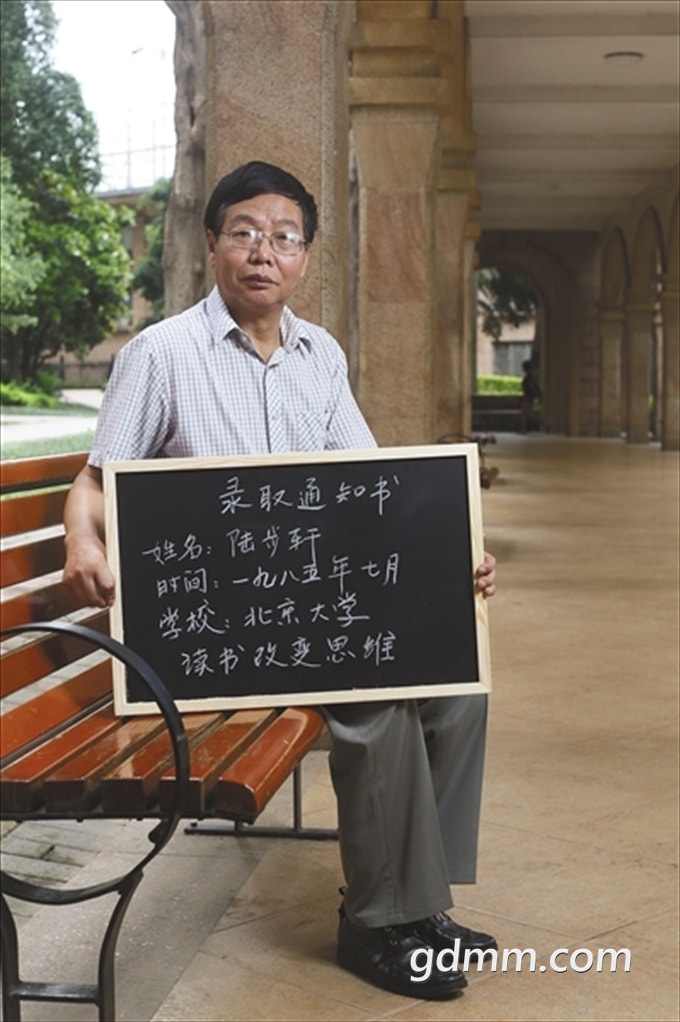 录取通知书
姓名：陆步轩
时间：一九八五年七月
学校：北京大学
读书改变思维
gdmm.com